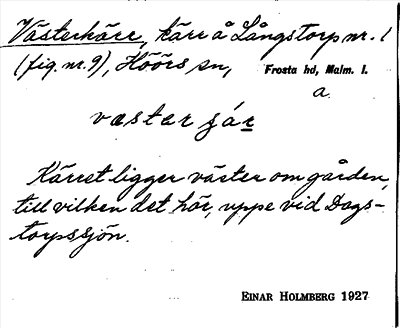 Västerkärr, kärr å Långstorp nr. 1
(fig. nr. 9), Höörs sn, Frosta hd, Malm. l.
a.
væster ɕár
Kärret ligger väster om gården,
till vilken det hör, uppe vid Dags-
torpssjön.
EINAR HOLMBERG 1927